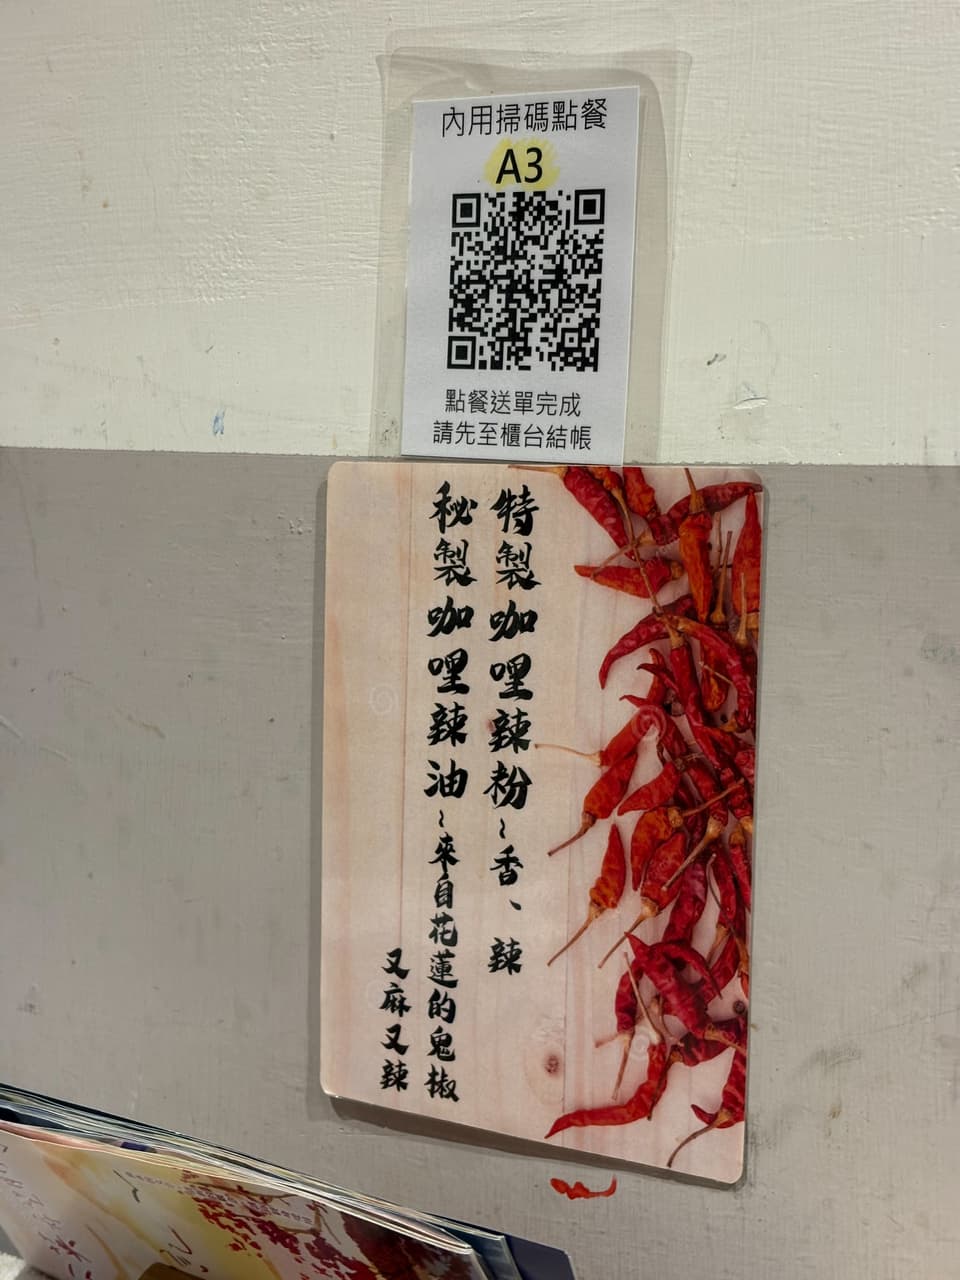 內用掃碼點餐
A3
點餐送單完成
請先至櫃台結帳
特製咖哩辣粉~香、辣
秘製咖哩辣油~來自花蓮的鬼椒
又麻又辣